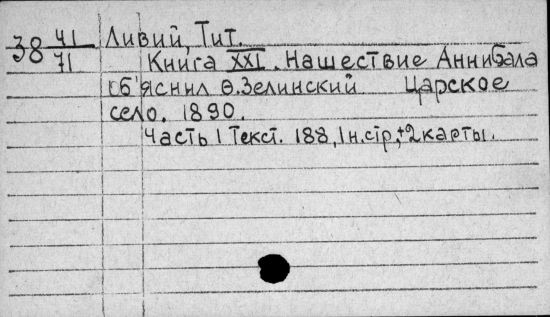 38 41/71 Ливий, Тит.
Книга XXI. Нашествие Аннибала
Об'яснил Ѳ.Зелинский Царское
село. 1890.
Часть 1 Текст. 188, 1 н.стр,+2 карты.